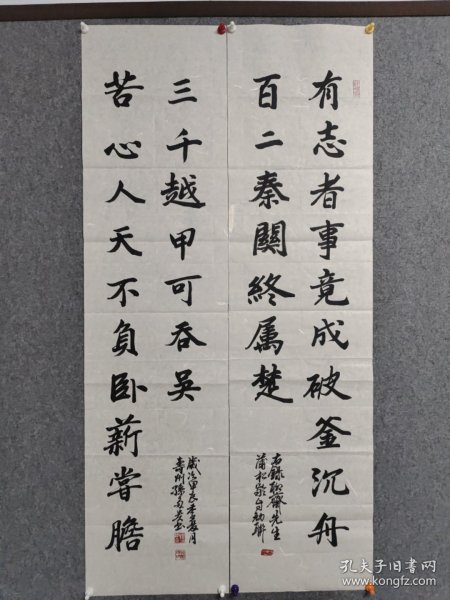 有志者事竟成破釜沉舟
百二秦關終屬楚
右錄聊齋先生
蒲松齡自勉聯
苦心人天不負卧薪嘗膽
三千越甲可吞吴
歲次甲辰季夏月
壽州孫
孔夫子旧书网
book.kongfz.com